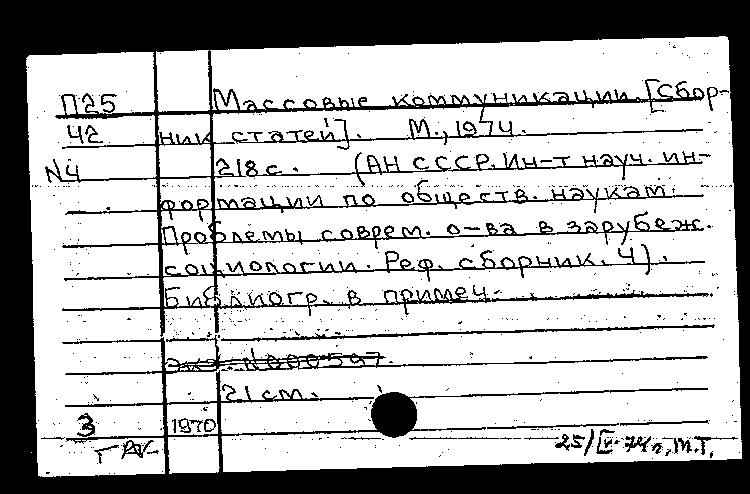 П25 Массовые коммуникации. [Сбор-
42 ник статей]. М., 1974.
N4 218 с. (АН СССР. Ин-т науч. ин-
формации по обществ. наукам.
Проблемы соврем. о-ва в зарубеж.
социологии. Реф. сборник. 4).
Библиогр. в примеч.
Экз. N000597.
21 cm.
3 1970
25/IV-74г., М.Т.